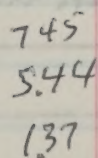 7 45
5.44
1.37